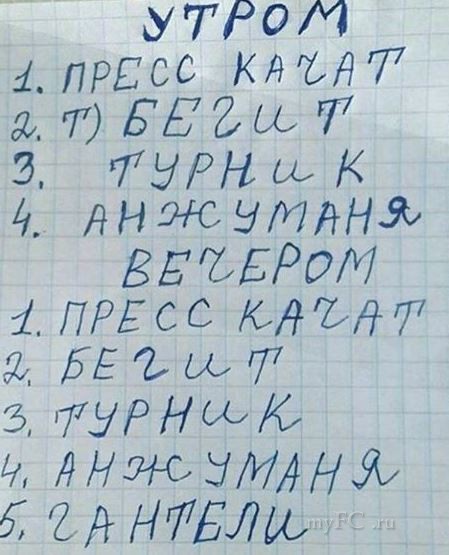 УТРОМ
1. ПРЕСС КАЧАТ
2. Т) БЕГИТ
3. ТУРНИК
4. АНЖУМАНЯ
ВЕЧЕРОМ
1. ПРЕСС КАЧАТ
2. БЕГИТ
3. ТУРНИК
4. АНЖУМАНЯ
5. ГАНТЕЛИ
myFC.ru